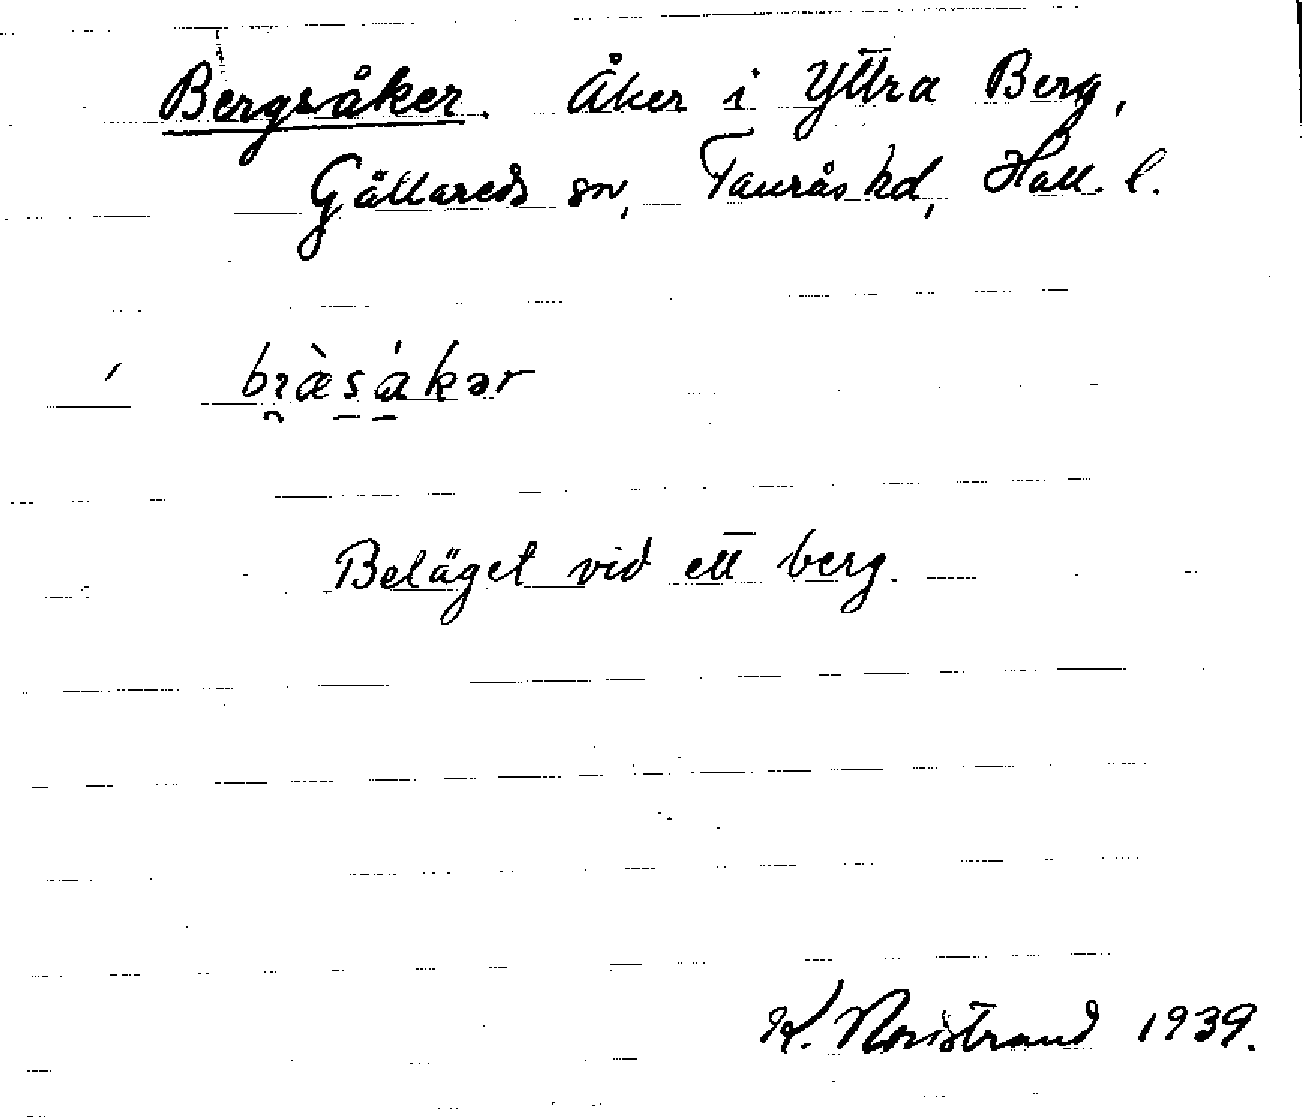 Bergsåker. Åker i Yttra Berg,
Gällareds sn, Faurås hd, Hall. l.
bræ̀sákər
Beläget vid ett berg.
K. Nordstrand 1939.